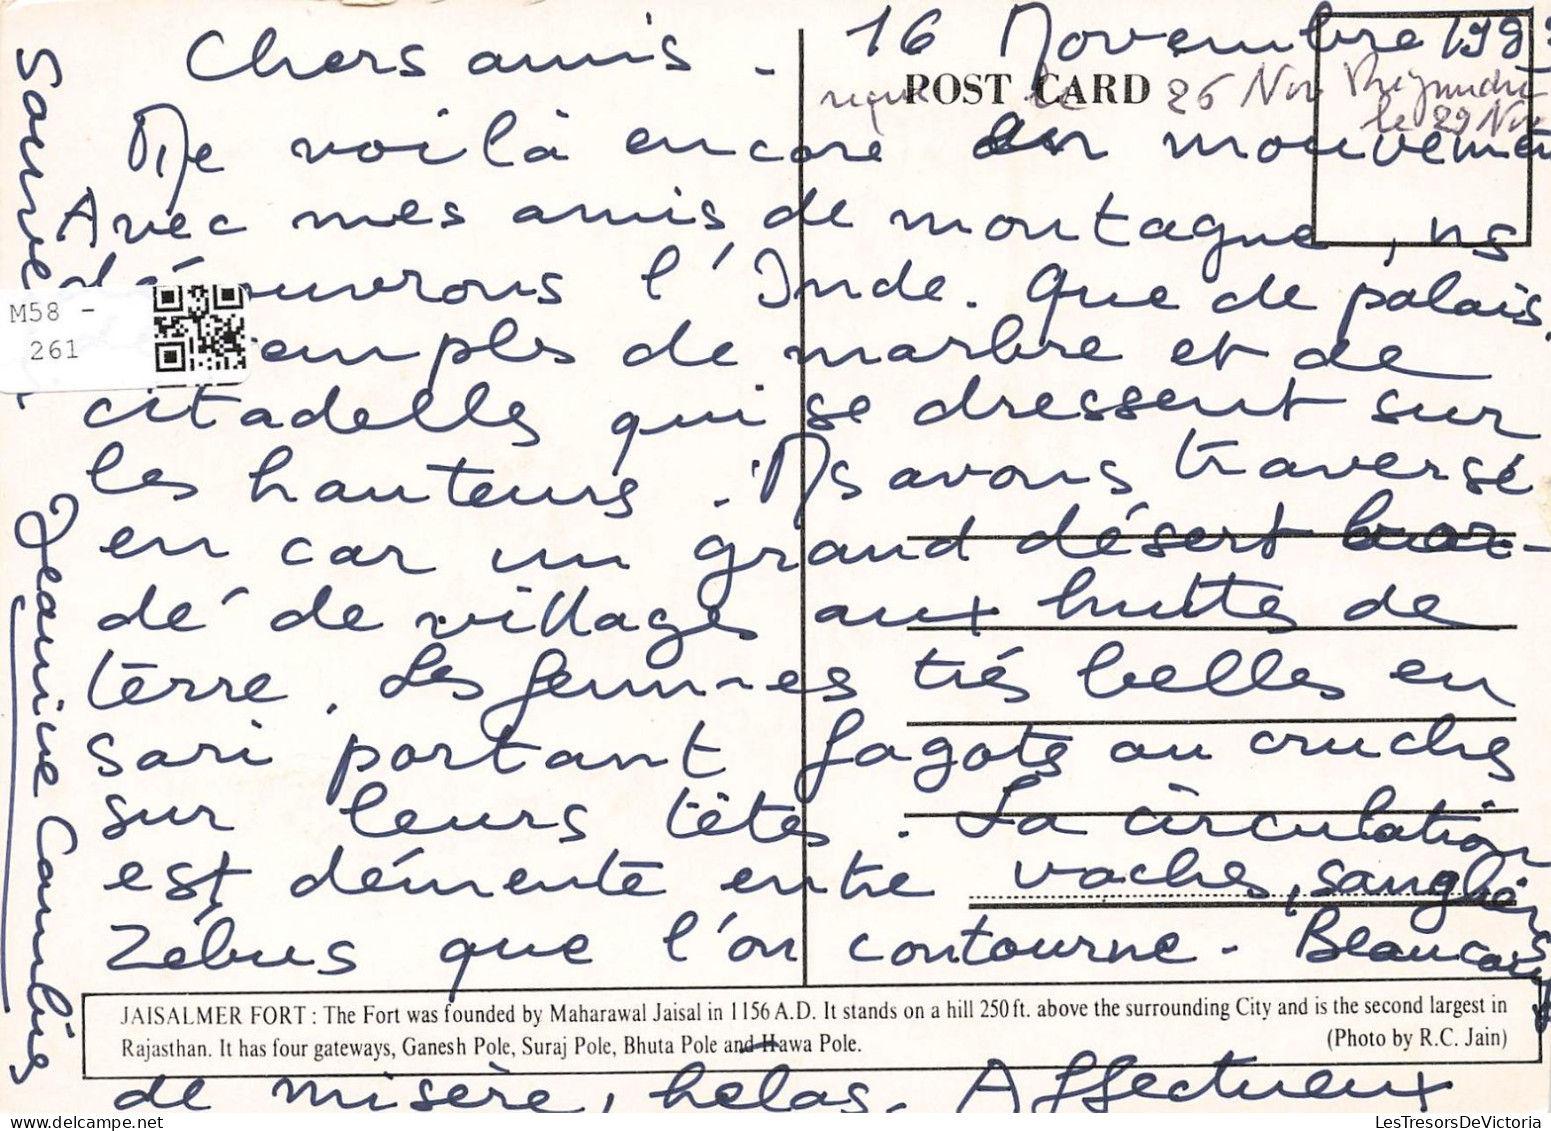 Chers amis - 16 Novembre 199
POST CARD
reçue le 26 Nov
le 29 Nov
Me voilà encore en mouvement
Avec mes amis de montagne, ns
découvrons l'Inde. Que de palais,
temples de marbre et de
citadelles qui se dressent sur
les hauteurs. Ns avons traversé
en car un grand désert bor-
dé de villages aux huttes de
terre. Les femmes très belles en
sari portant fagots ou cruches
sur leurs têtes. La circulation
est démente entre vaches, sangliers
Zébus que l'on contourne - Beaucoup
JAISALMER FORT : The Fort was founded by Maharawal Jaisal in 1156 A.D. It stands on a hill 250 ft. above the surrounding City and is the second largest in
Rajasthan. It has four gateways, Ganesh Pole, Suraj Pole, Bhuta Pole and Hawa Pole.
(Photo by R.C. Jain)
de misère, hélas. Affectueux
M58 -
261
LesTresorsDeVictoria